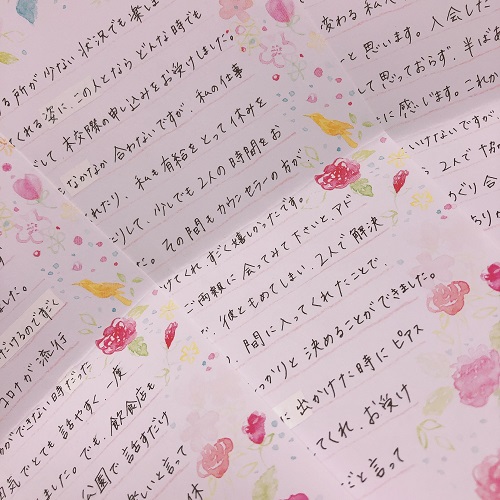 る所が少ない状況でも楽しま
くれる姿に、この人とならどんな時でも
して真剣交際の申し込みをお受けしました。
なかなか合わないですが、私の仕事
れたり、私も有給をとって休みを
こりして、少しでも2人の時間をお
た。その間もカウンセラーの方が
変わる私
と思います。入会した
して思っておらず、半ばあ
に感じます。これか
いけないですが
2人で協
めぐり合
けてくれ、すごく嬉しかったです。
ご両親に会ってみて下さいと、アド
、彼ともめてしまい、2人で解決
、間に入ってくれたことで、
っかりと決めることができました。
に出かけた時にピアス
てくれ、お受け
だと言って
ました。
だけるのですと
コロナが流行
ができない時だった
気でとても話しやすく、一度
しました。でも、飲食店も
公園で話すだけ
しいと言って
休